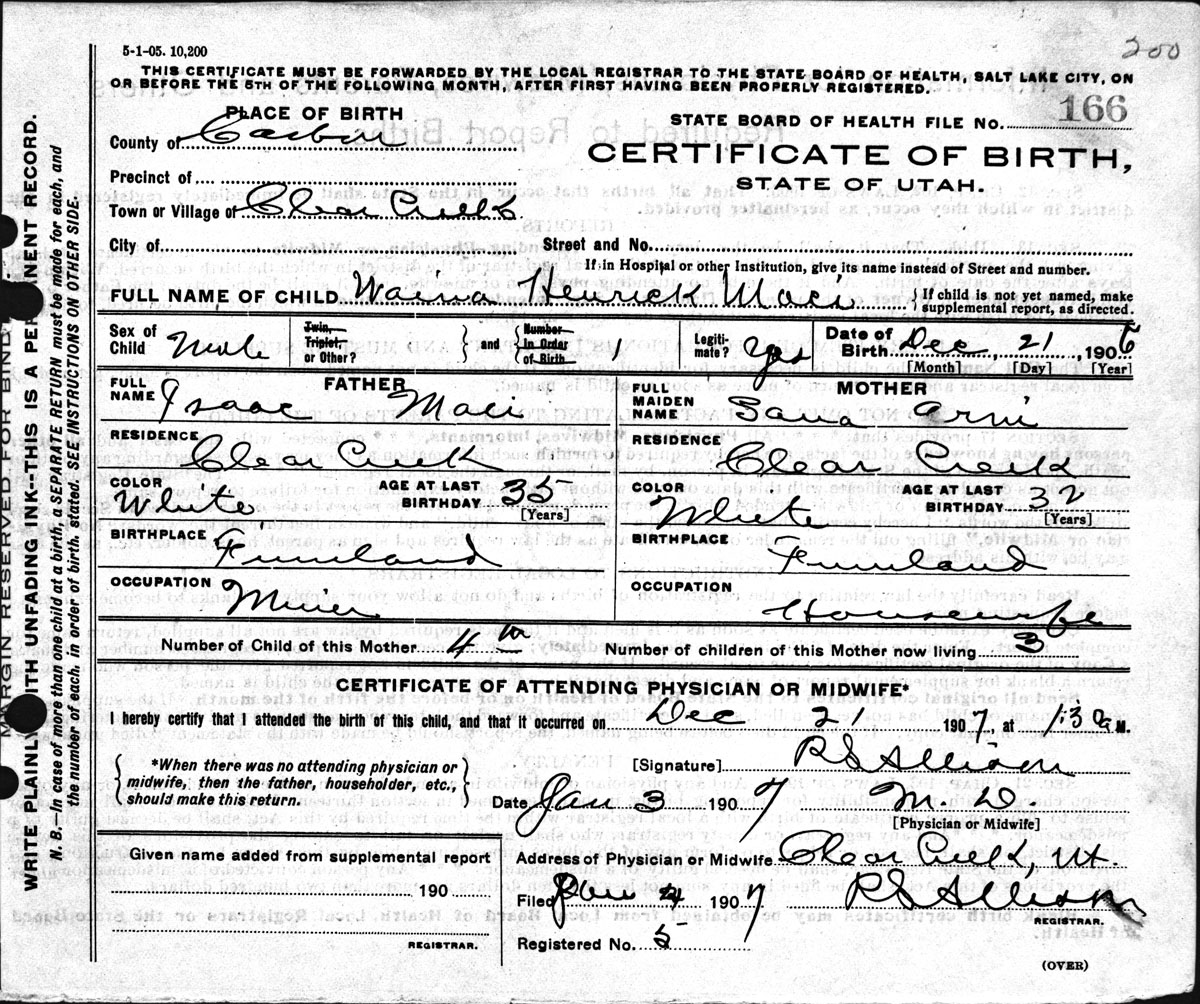 5-1-05. 10,200
200
THIS CERTIFICATE MUST BE FORWARDED BY THE LOCAL REGISTRAR TO THE STATE BOARD OF HEALTH, SALT LAKE CITY, ON
OR BEFORE THE 5TH OF THE FOLLOWING MONTH, AFTER FIRST HAVING BEEN PROPERLY REGISTERED.
PLACE OF BIRTH
STATE BOARD OF HEALTH FILE No. 166
County of Carbon
CERTIFICATE OF BIRTH,
STATE OF UTAH.
Precinct of
Town or Village of Clear Creek
City of Street and No.
If in Hospital or other Institution, give its name instead of Street and number.
FULL NAME OF CHILD Waina Henrick Maci { If child is not yet named, make
supplemental report, as directed.
Sex of Child Male Twin, Triplet, or Other? } and { Number in Order of Birth 1 Legiti- mate? Yes Date of Birth Dec, 21, 1906
[Month] [Day] [Year]
FATHER
FULL NAME Isaac Maci
RESIDENCE Clear Creek
COLOR White AGE AT LAST BIRTHDAY 35 [Years]
BIRTHPLACE Finnland
OCCUPATION Miner
MOTHER
FULL MAIDEN NAME Sana Arni
RESIDENCE Clear Creek
COLOR White AGE AT LAST BIRTHDAY 32 [Years]
BIRTHPLACE Finnland
OCCUPATION Housewife
Number of Child of this Mother 4th Number of children of this Mother now living 3
CERTIFICATE OF ATTENDING PHYSICIAN OR MIDWIFE*
I hereby certify that I attended the birth of this child, and that it occurred on Dec 21 1907, at 1:30 a M.
{ *When there was no attending physician or
midwife, then the father, householder, etc.,
should make this return. }
[Signature] RS Allison
Date Jan 3 1907 M. D.
[Physician or Midwife]
Given name added from supplemental report
190
REGISTRAR.
Address of Physician or Midwife Clear Creek Ut.
Filed Jan 4 1907 RS Allison
REGISTRAR.
Registered No. 5
(OVER)
MARGIN RESERVED FOR BIND
WRITE PLAINLY WITH UNFADING INK--THIS IS A PERMANENT RECORD.
N. B. In case of more than one child at a birth, a SEPARATE RETURN must be made for each, and
the number of each, in order of birth, stated. SEE INSTRUCTIONS ON OTHER SIDE.